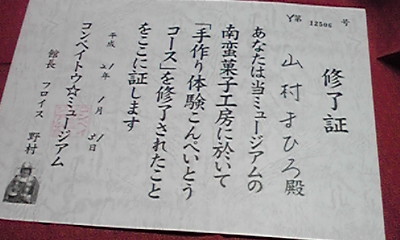 Y第 12506 号
修了証
山村まひろ殿
あなたは当ミュージアムの
南蛮菓子工房に於いて
「手作り体験こんぺいとう
コース」を修了されたこと
をここに証します
平成 21年 1月 31日
コンペイトウ☆ミュージアム
館長 フロイス 野村